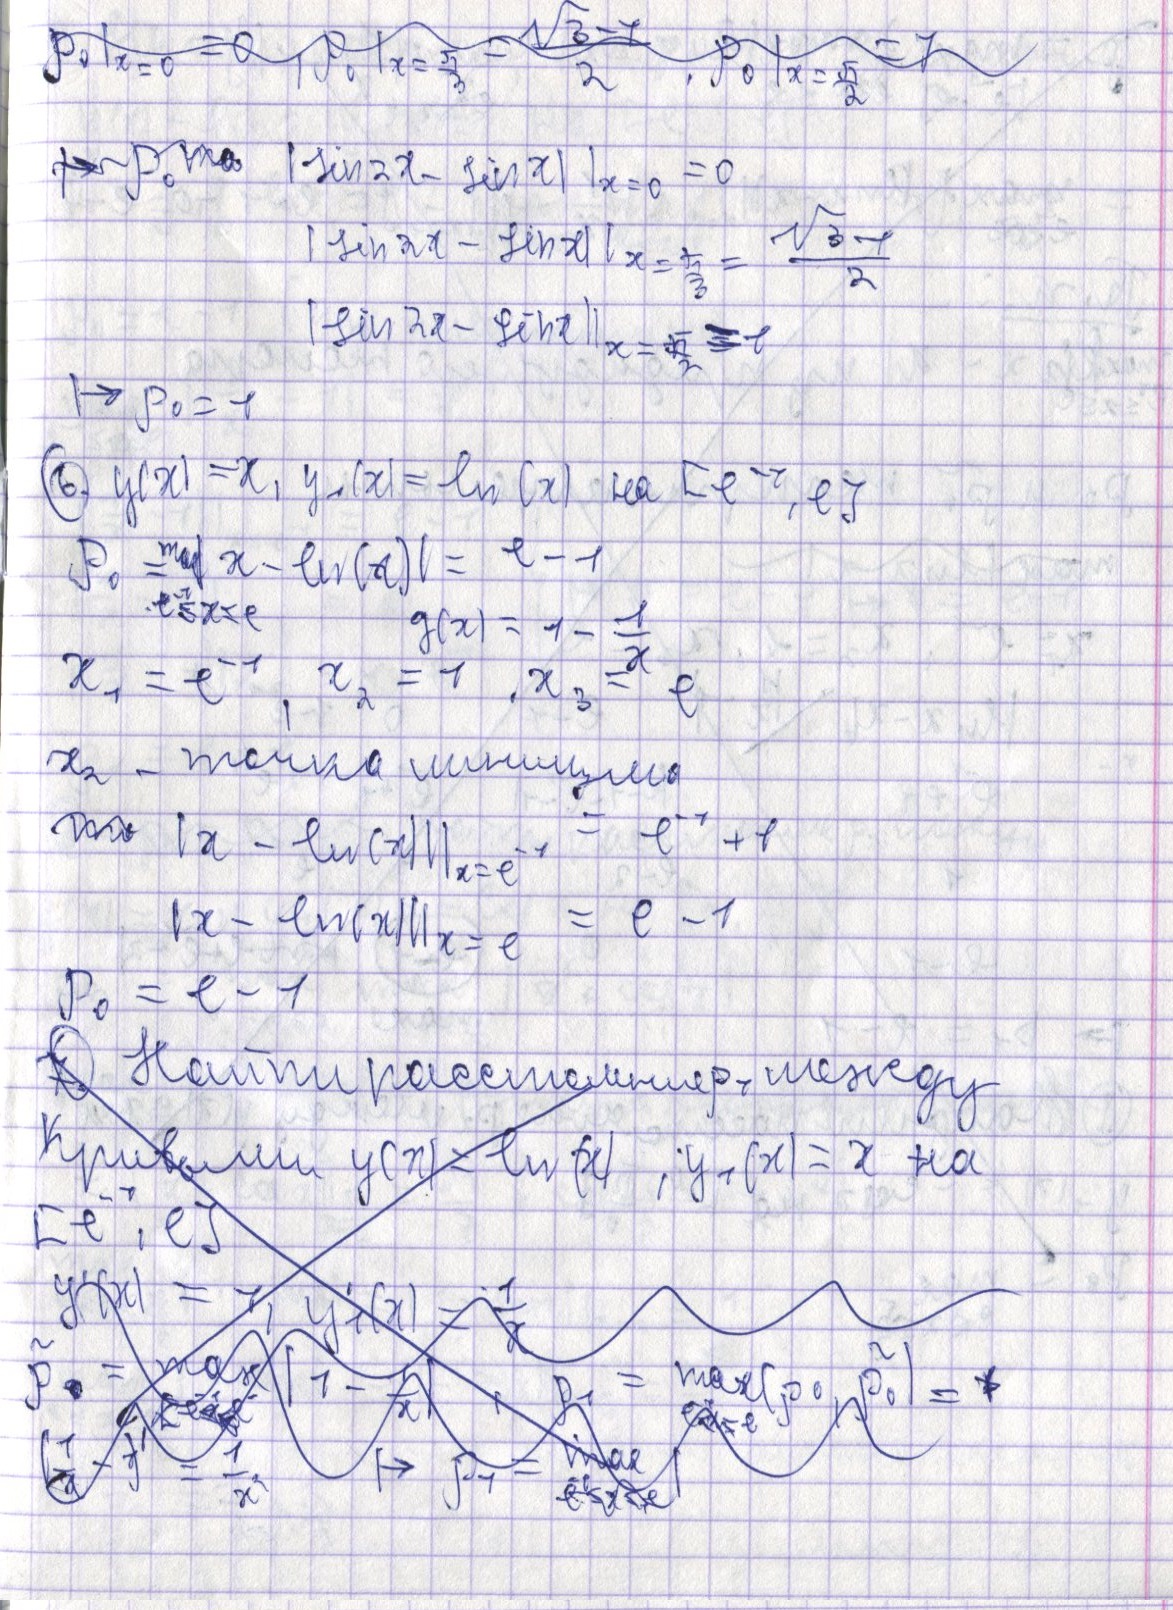 ρ₀|ₓ₌₀ = 0, ρ₀|ₓ₌π/3 = (√3-1)/2, ρ₀|ₓ₌π/2 = 1
↦ ρ₀ |sin2x - sinx||ₓ₌₀ = 0
|sin2x - sinx||ₓ₌π/3 = (√3-1)/2
|sin2x - sinx||ₓ₌π/2 = 1
↦ ρ₀ = 1
6. y(x) = x, y₁(x) = ln(x) на [e⁻¹, e]
ρ₀ = max |x - ln(x)| = e - 1
e⁻¹≤x≤e g(x) = 1 - 1/x
x₁ = e⁻¹, x₂ = 1, x₃ = e
x₂ - точка минимума
|x - ln(x)||ₓ₌e⁻¹ = e⁻¹ + 1
|x - ln(x)||ₓ₌e = e - 1
ρ₀ = e - 1
7. Найти расстояние ρ₁ между
кривыми y(x) = ln(x), y₁(x) = x на
[e⁻¹, e]
y'(x) = 1, y₁'(x) = 1/x
ρ̃₀ = max |1 - 1/x|, ρ₁ = max(ρ₀, ρ̃₀) =
= 1/x² ↦ ρ₁ = max
e⁻¹≤x≤e